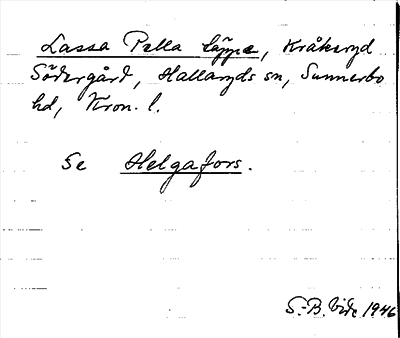 Lassa Pella täppe, Kråkeryd
Södergård, Hallaryds sn, Sunnerbo
hd, Kron. l.
Se Helgafors.
S.-B. Vide 1946